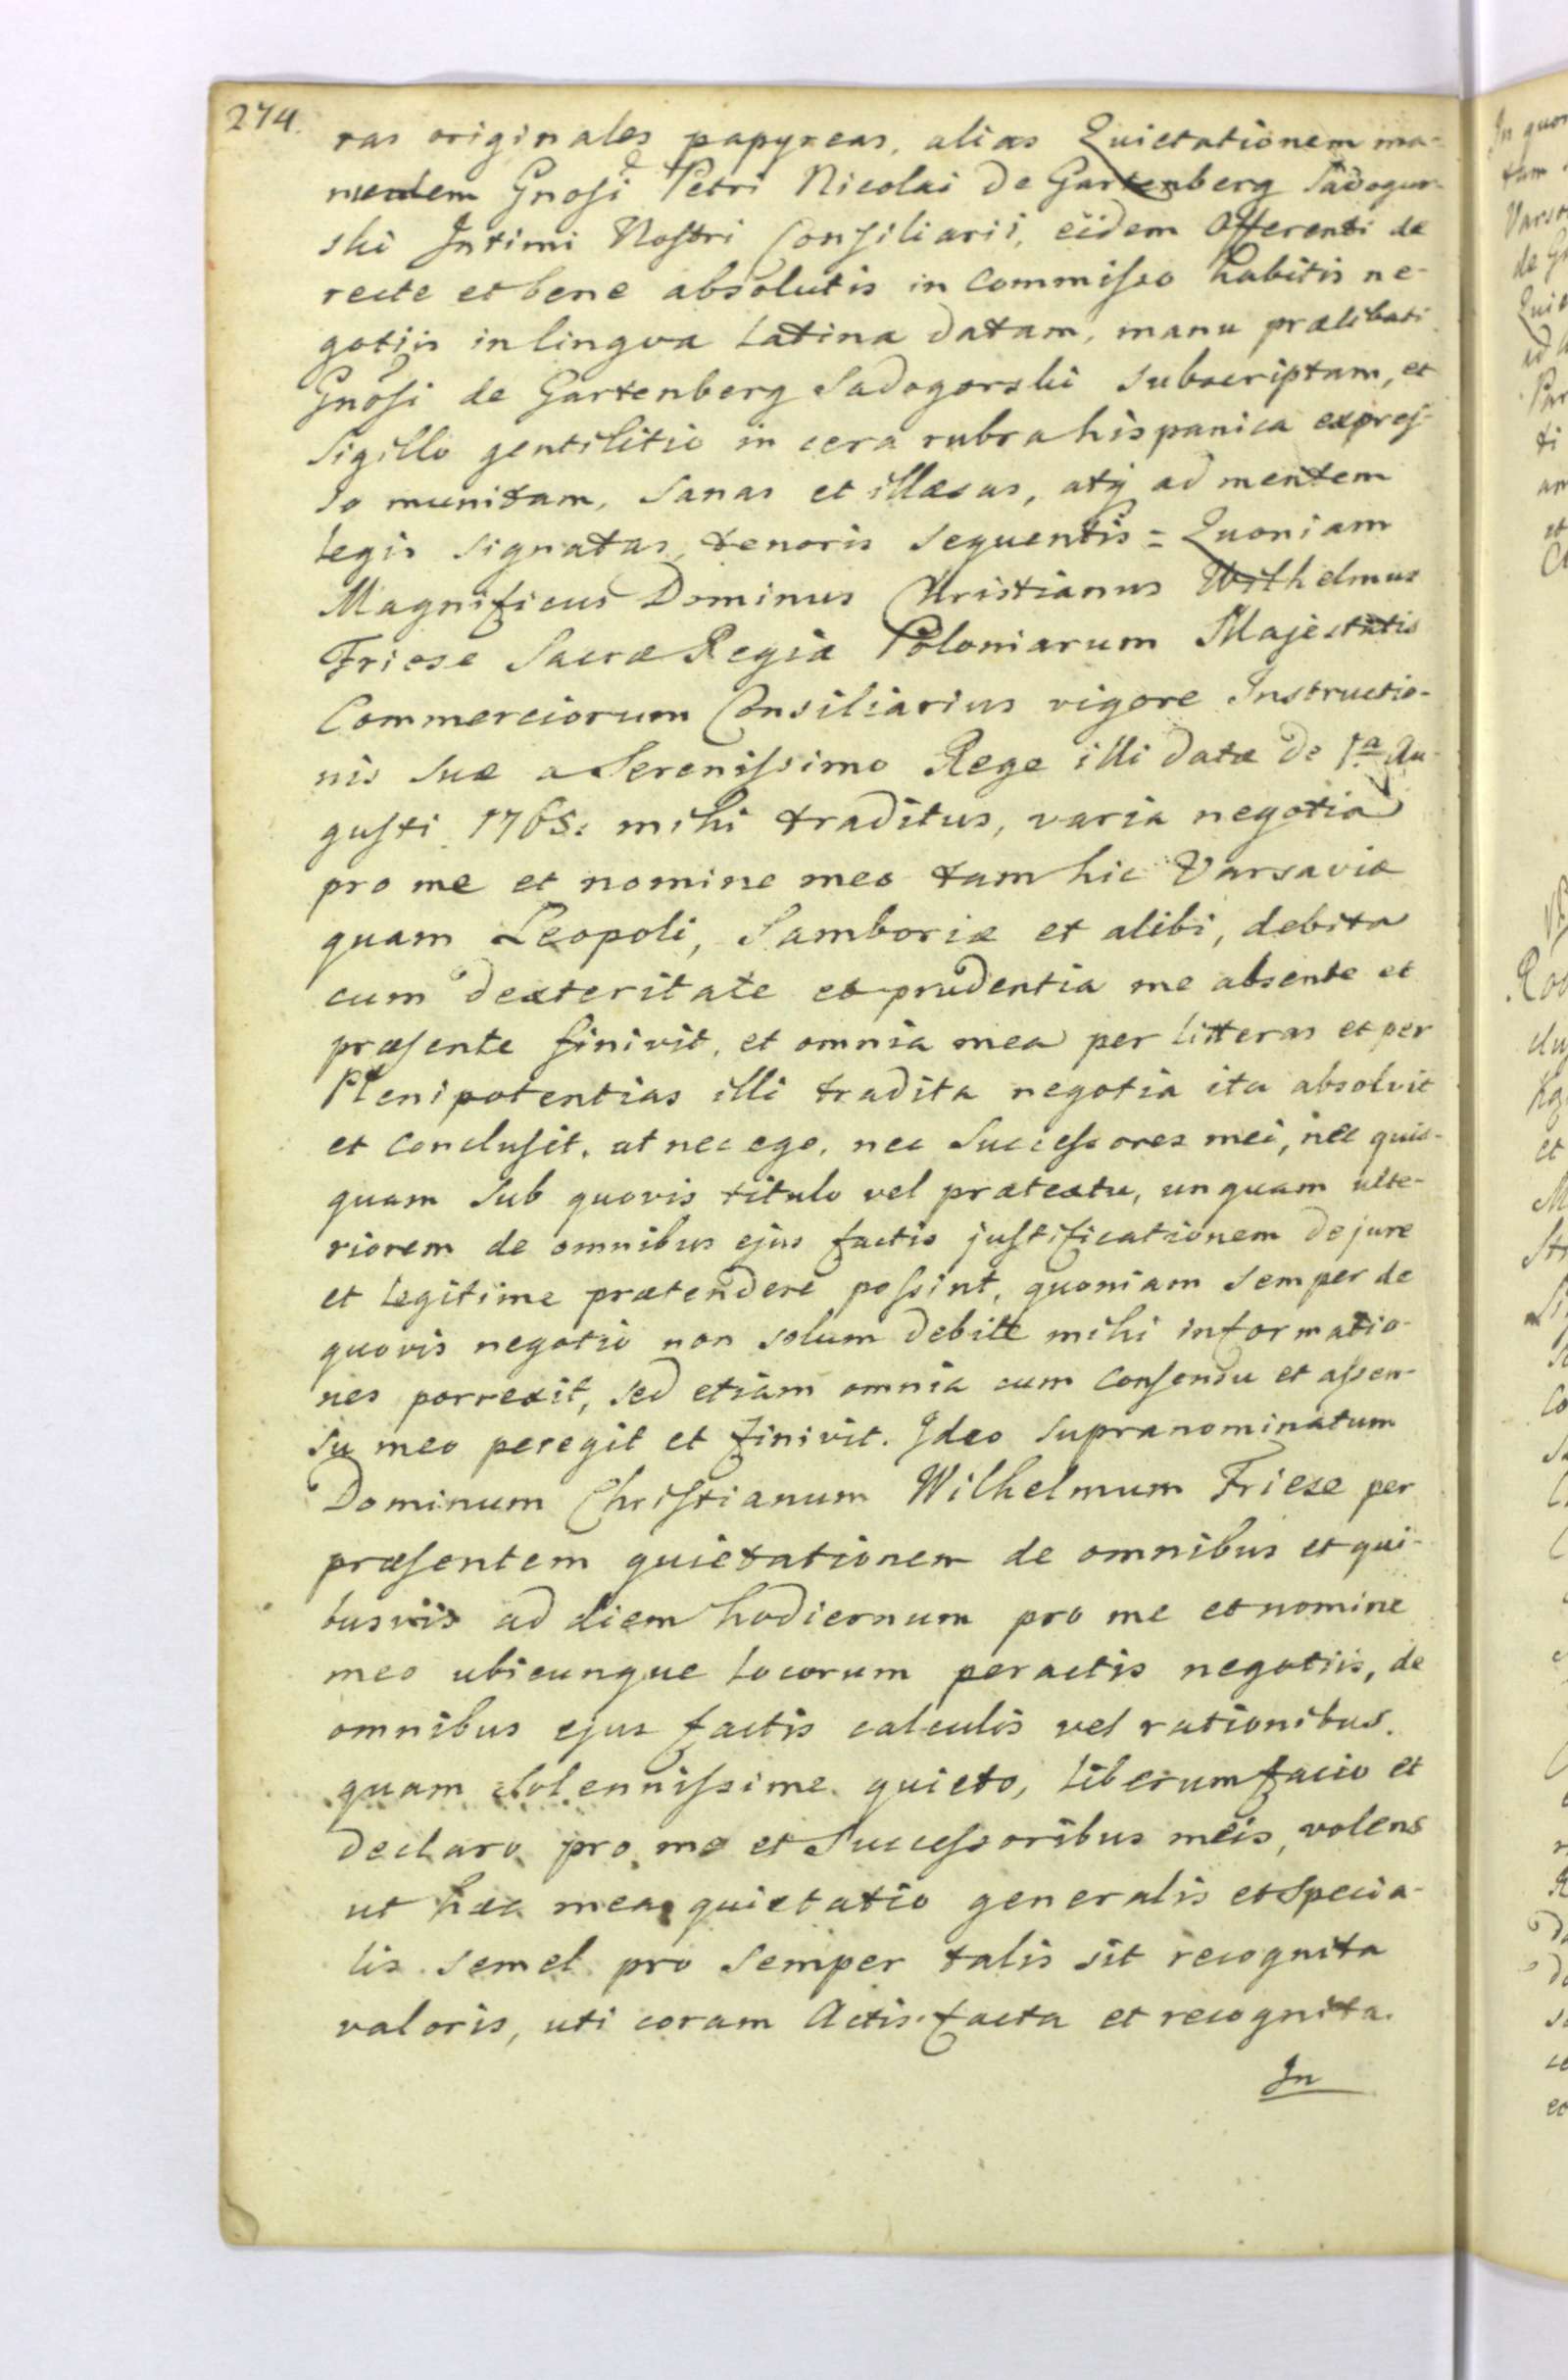 274.
ras originales papyreas, alias Quietationem ma-
nualem Gnosi Petri Nicolai de Gartenberg Sadogur-
ski Intimi Nostri Consiliarii, eidem Offerenti de
recte et bene absolutis in commisso habitis ne-
gotiis in lingva latina datam, manu prælibati
Gnosi de Gartenberg Sadogorski subscriptam, et
Sigillo gentilitio in cera rubra hispanica expres-
so munitam, sanas et illæsas, atq ad mentem
legis signatas, tenoris sequentis = Quoniam
Magnificus Dominus Christianus Wilhelmus
Friese Sacræ Regiæ Poloniarum Majestatis
Commerciorum Consiliarius vigore Instructio-
nis suæ a Serenissimo Rege illi datæ de 1a Au-
gusti 1765: mihi traditus, varia negotia
pro me et nomine meo tam hic Varsaviæ
quam Leopoli, Samboriæ et alibi, debita
cum dexteritate et prudentia me absente et
præsente finivit, et omnia mea per litteras et per
Plenipotentias illi tradita negotia ita absolvit
et conclusit, ut nec ego, nec Successores mei, nec quis-
quam sub quovis titulo vel prætextu, unquam ulte-
riorem de omnibus ejus factis justificationem de jure
et legitime prætendere possint, quoniam semper de
quovis negotio non solum debite mihi informatio-
nes porrexit, sed etiam omnia cum consensu et assen-
su meo peregit et finivit. Ideo supranominatum
Dominum Christianum Wilhelmum Friese per
præsentem quietationem de omnibus et qui-
busvis ad diem hodiernum pro me et nomine
meo ubicunque locorum peractis negotiis, de
omnibus ejus factis calculis vel rationibus.
quam solennissime quieto, liberum facio et
declaro pro me et Successoribus meis, volens
ut hæc mea quietatio generalis et specia-
lis semel pro semper talis sit recognita
valoris, uti coram Actis facta et recognita.
In